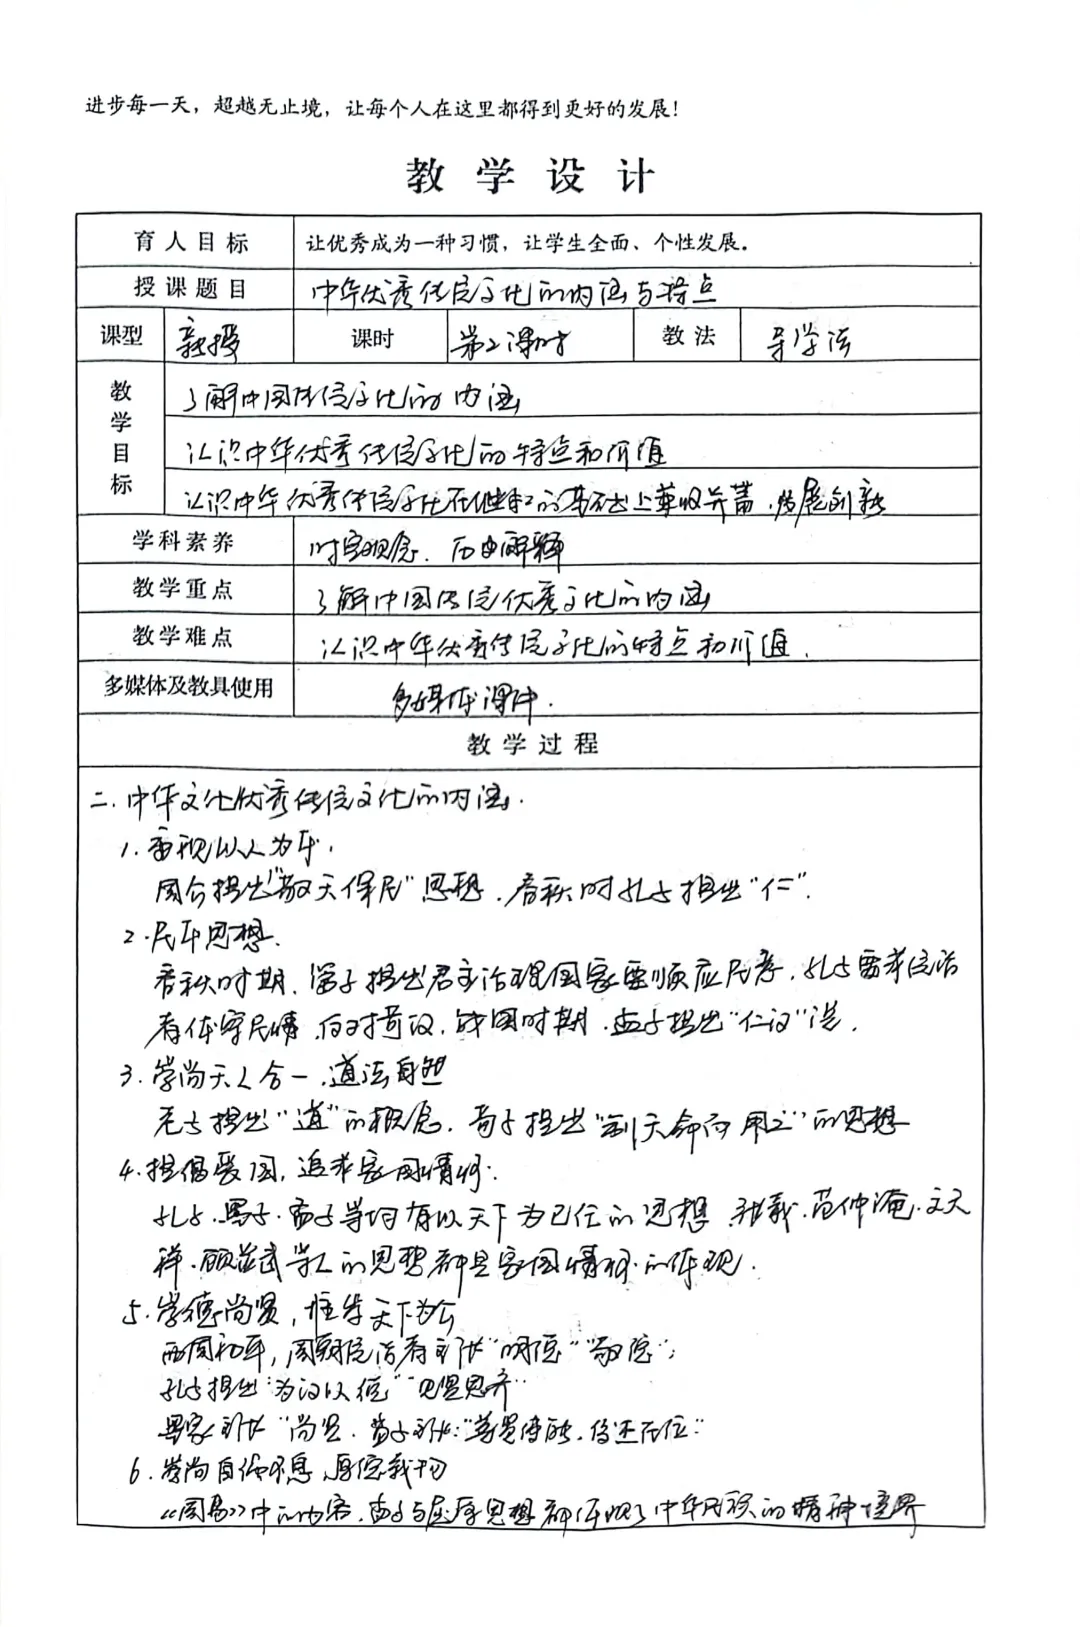 进步每一天，超越无止境，让每个人在这里都得到更好的发展！
教学设计
育人目标 让优秀成为一种习惯，让学生全面、个性发展。
授课题目 中华优秀传统文化的内涵与特点
课型 新授 课时 第2课时 教法 导学法
教学目标 了解中国传统文化的内涵
认识中华优秀传统文化的特点和价值
认识中华优秀传统文化在继承的基础上兼收并蓄，发展创新
学科素养 时空观念、历史解释
教学重点 了解中国传统优秀文化的内涵
教学难点 认识中华优秀传统文化的特点和价值.
多媒体及教具使用 多媒体课件.
教学过程
二.中华文化优秀传统文化的内涵.
1.重视以人为本.
周公提出"敬天保民"思想.春秋时孔子提出"仁".
2.民本思想.
春秋时期.管子提出君主治理国家要顺应民意.孔子要求统治
者体察民情.反对苛政.战国时期.孟子提出"仁政"说.
3.崇尚天人合一.道法自然
老子提出"道"的概念.荀子提出"制天命而用之"的思想
4.提倡爱国,追求家国情怀.
孔子.墨子.孟子等均有以天下为己任的思想.张载.范仲淹.文天
祥.顾炎武等人的思想都是家国情怀的体现.
5.崇德尚贤,推崇天下为公
西周初年,周朝统治者主张"明德""敬德";
孔子提出"为政以德""见贤思齐"
墨家主张"尚贤.孟子主张:"尊贤使能.俊杰在位"
6.崇尚自强不息,厚德载物
《周易》中的内容.孟子与屈原思想都体现了中华民族的精神境界